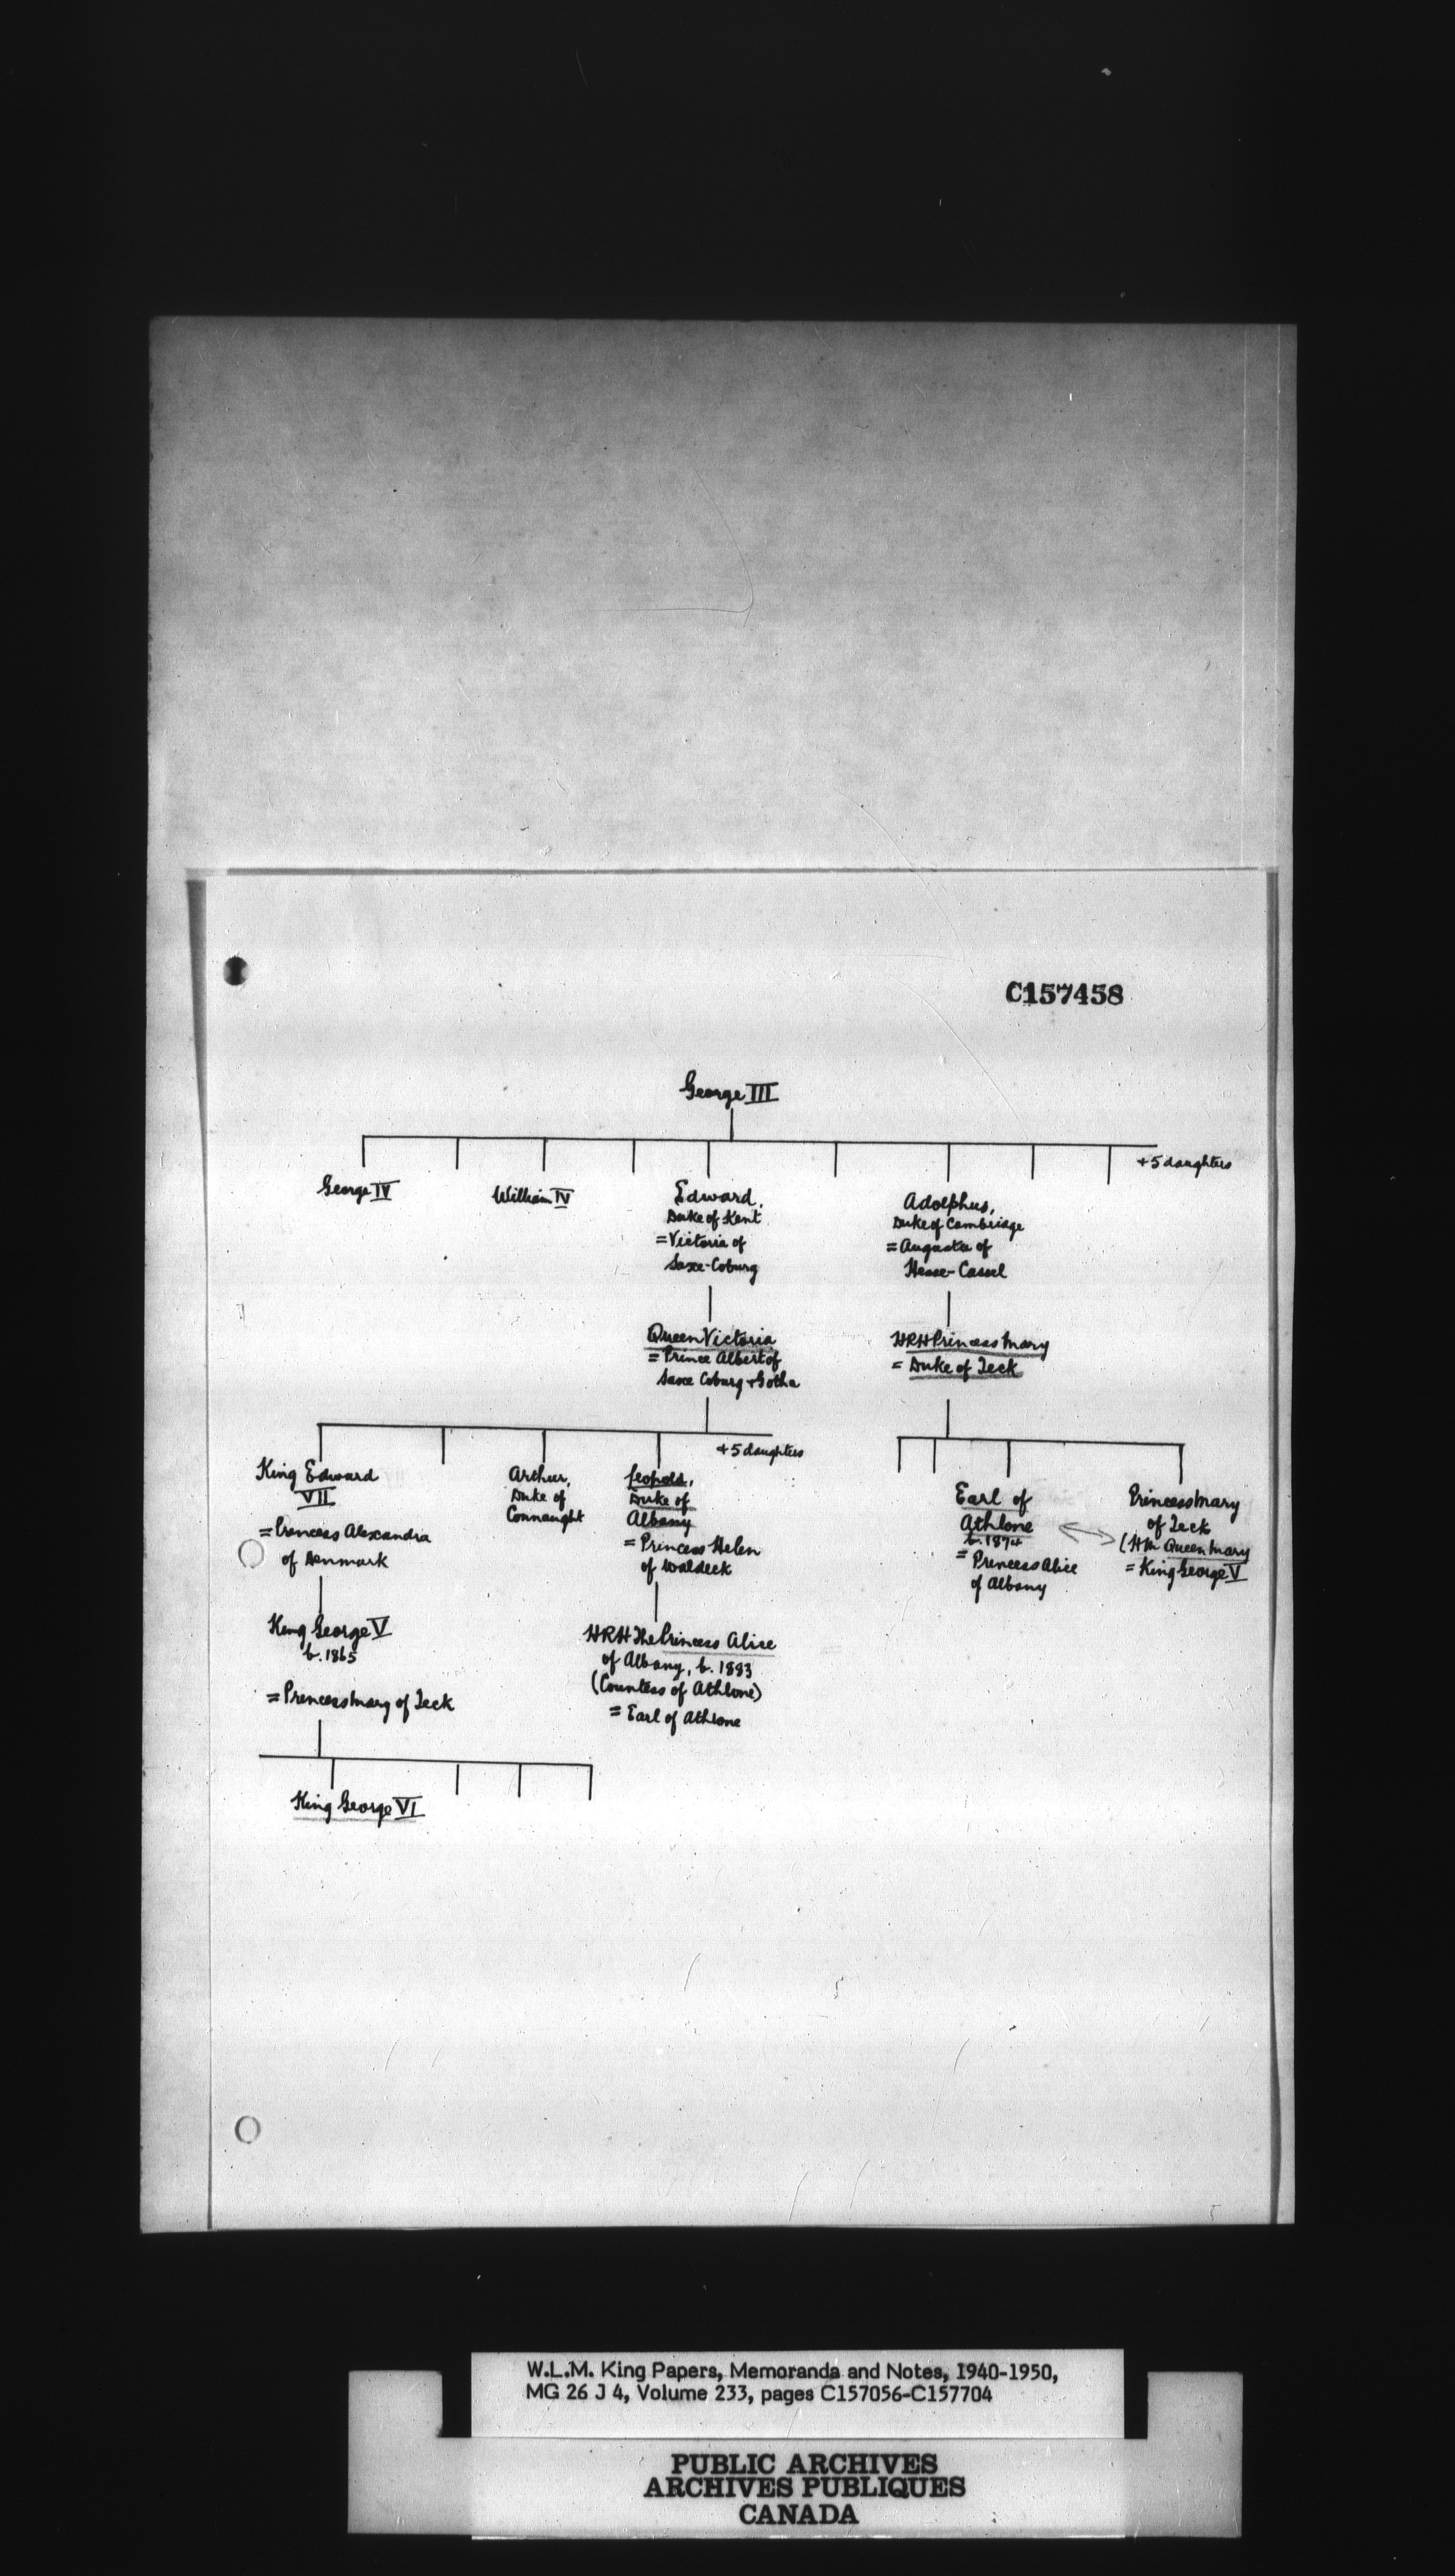 C157458
George III
+5 daughters
George IV
William IV
Edward,
Duke of Kent
=Victoria of
Saxe-Coburg
Adolphus,
Duke of Cambridge
=Augusta of
Hesse-Cassel
Queen Victoria
=Prince Albert of
Saxe Coburg+Gotha
HRH Princess Mary
= Duke of Teck
+5 daughters
King Edward
VII
=Princess Alexandra
of Denmark
Arthur,
Duke of
Connaught
Leopold,
Duke of
Albany
=Princess Helen
of Waldeck
Earl of
Athlone
b.1874
= Princess Alice
of Albany
Princess Mary
of Teck
(HM Queen Mary
= King George V
King George V
b.1865
=Princess Mary of Teck
HRH The Princess Alice
of Albany, b. 1883
(Countess of Athlone)
= Earl of Athlone
King George VI
W.L.M. King Papers, Memoranda and Notes, 1940-1950,
MG 26 J 4, Volume 233, pages C157056-C157704
PUBLIC ARCHIVES
ARCHIVES PUBLIQUES
CANADA